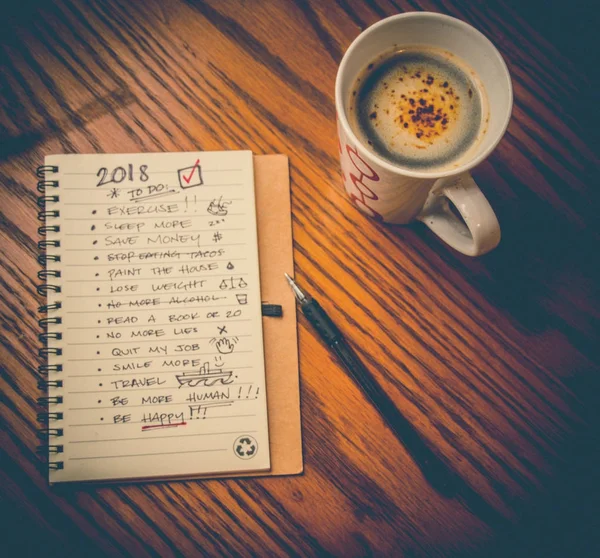 2018
* TO DO:
• EXERCISE!!
• SLEEP MORE zzz
• SAVE MONEY $
• STOP EATING TACOS
• PAINT THE HOUSE
• LOSE WEIGHT
• NO MORE ALCOHOL
• READ A BOOK OR 20
• NO MORE LIES X
• QUIT MY JOB
• SMILE MORE
• TRAVEL
• BE MORE HUMAN!!!
• BE HAPPY!!!